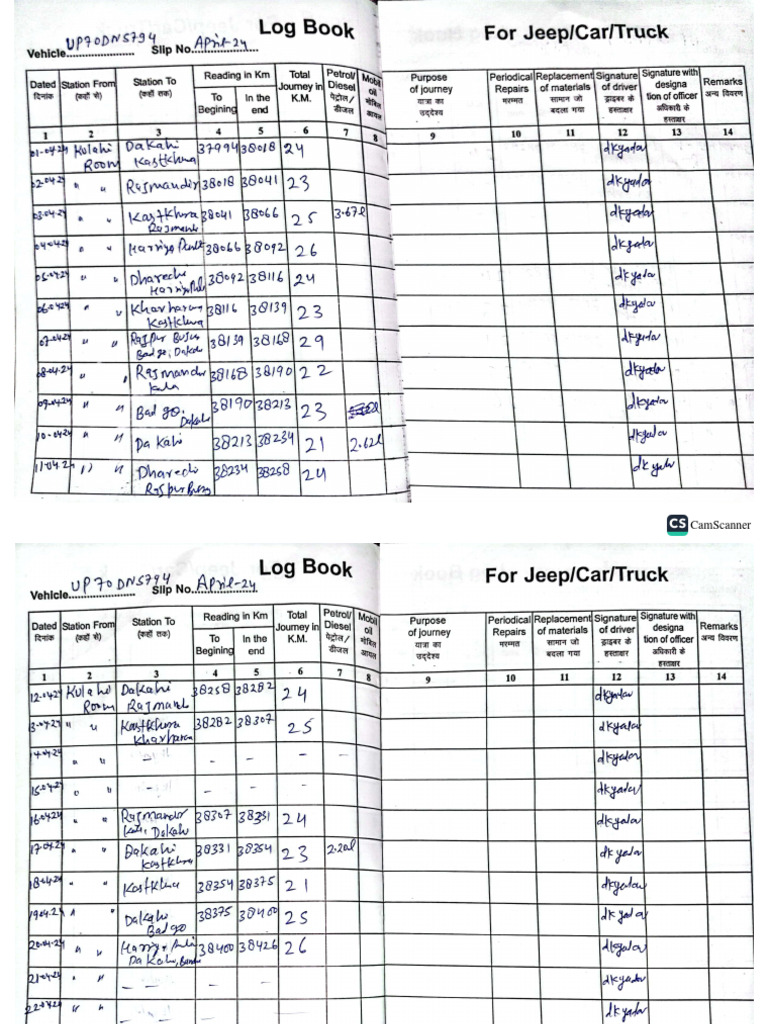 Log Book
For Jeep/Car/Truck
Vehicle UP70DN5794 Slip No. April-24
Dated Station From Station To Reading in Km Total Journey in K.M. Petrol/ Diesel Mobil oil Purpose of journey Periodical Repairs Replacement of materials Signature of driver Signature with designa tion of officer Remarks
दिनांक (कहाँ से) (कहाँ तक) To Begining In the end पेट्रोल/ डीजल मोबिल आयल यात्रा का उद्देश्य मरम्मत सामान जो बदला गया ड्राइबर के हस्ताक्षर अधिकारी के हस्ताक्षर अन्य विवरण
1 2 3 4 5 6 7 8 9 10 11 12 13 14
01-04-24 Kulahi Room Dakahi Kastkhura 37994 38018 24 dkyadav
02-04-24 " " Rajmandir 38018 38041 23 dkyadav
03-04-24 " " Kastkhura 38041 38066 25 3.67l dkyadav
04-04-24 " " 38066 38092 26 dkyadav
05-04-24 " " Dharechi 38092 38116 24 dkyadav
06-04-24 " " Kharharan Kastkhura 38116 38139 23 dkyadav
07-04-24 " " Rajpur Badgo, Dakahi 38139 38168 29 dkyadav
08-04-24 " " Rajmandir Kala 38168 38190 22 dkyadav
09-04-24 " " Badgo, Dakahi 38190 38213 23 dkyadav
10-04-24 " " Dakahi 38213 38234 21 2.62l dkyadav
11-04-24 " " Dharechi 38234 38258 24 dkyadav
CS CamScanner
Log Book
For Jeep/Car/Truck
Vehicle UP70DN5794 Slip No. April-24
Dated Station From Station To Reading in Km Total Journey in K.M. Petrol/ Diesel Mobil oil Purpose of journey Periodical Repairs Replacement of materials Signature of driver Signature with designa tion of officer Remarks
दिनांक (कहाँ से) (कहाँ तक) To Begining In the end पेट्रोल/ डीजल मोबिल आयल यात्रा का उद्देश्य मरम्मत सामान जो बदला गया ड्राइबर के हस्ताक्षर अधिकारी के हस्ताक्षर अन्य विवरण
1 2 3 4 5 6 7 8 9 10 11 12 13 14
12-04-24 Kulahi Room Dakahi 38258 38282 24 dkyadav
13-04-24 " " Kastkhura Kharharan 38282 38307 25 dkyadav
14-04-24 " " - - - - - dkyadav
15-04-24 " " - - - - dkyadav
16-04-24 " " Rajmandir Kala, Dakahi 38307 38331 24 dkyadav
17-04-24 " " Dakahi Kastkhura 38331 38354 23 2.20l dkyadav
18-04-24 " " Kastkhura 38354 38375 21 dkyadav
19-04-24 " " Dakahi Badgo 38375 38400 25 dkyadav
20-04-24 " " Dakahi, 38400 38426 26 dkyadav
21-04-24 " " - - - - - dkyadav
22-04-24 " " - - - - - dkyadav